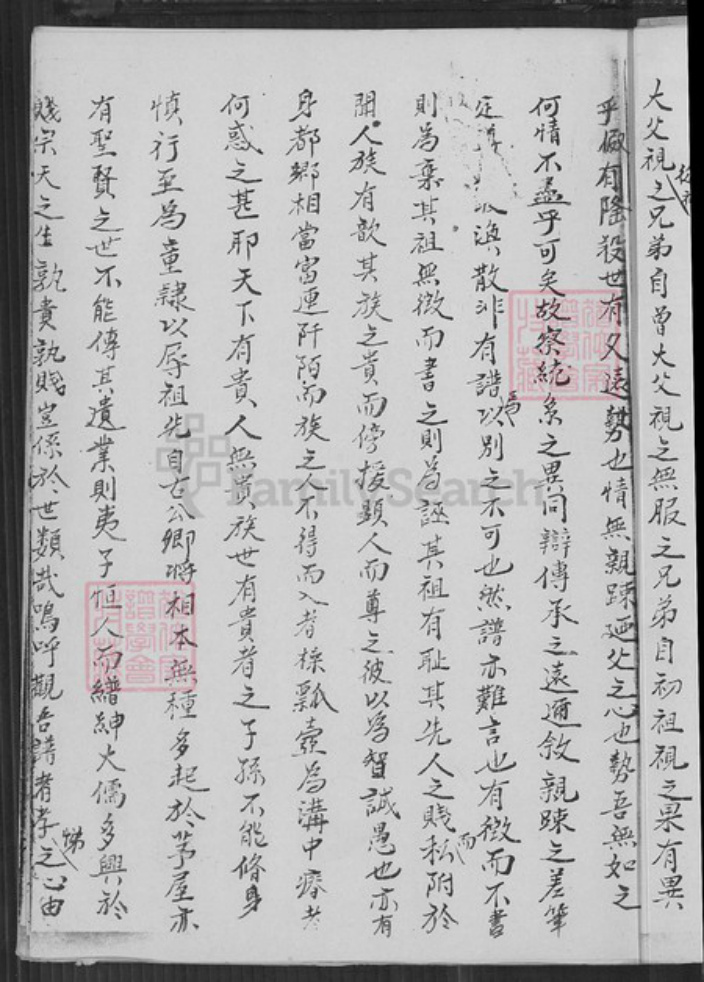 大父視之兄弟自曾大父視之無服之兄弟自初祖視之果有異
乎儆有隆殺世有久遠勢也情無親踈廼父之心也勢吾無如之
何情不盡乎可矣故察統系之異同辯傳承之遠邇敘親踈之差筆
定 渙散非有譜以別之不可也然譜亦難言也有徵而不書
則為棄其祖無徵而書之則為誣其祖有耻其先人之賤而私附於
聞人族有歆其族之貴而傍援顯人而尊之彼以為智誠愚也亦有
身都鄉相當富連阡陌而族之人不得而入者操瓢壺為溝中瘠者
何惑之甚耶天下有貴人無貴族世有貴者之子孫不能脩身
慎行至為童隷以辱祖先自古公卿將相本無種多起於茅屋亦
有聖賢之世不能傳其遺業則夷子恒人而縉紳大儒多興於
賤宗天之生孰貴孰賤豈係於世類哉嗚呼觀吾譜者孝悌之心由
FamilySearch